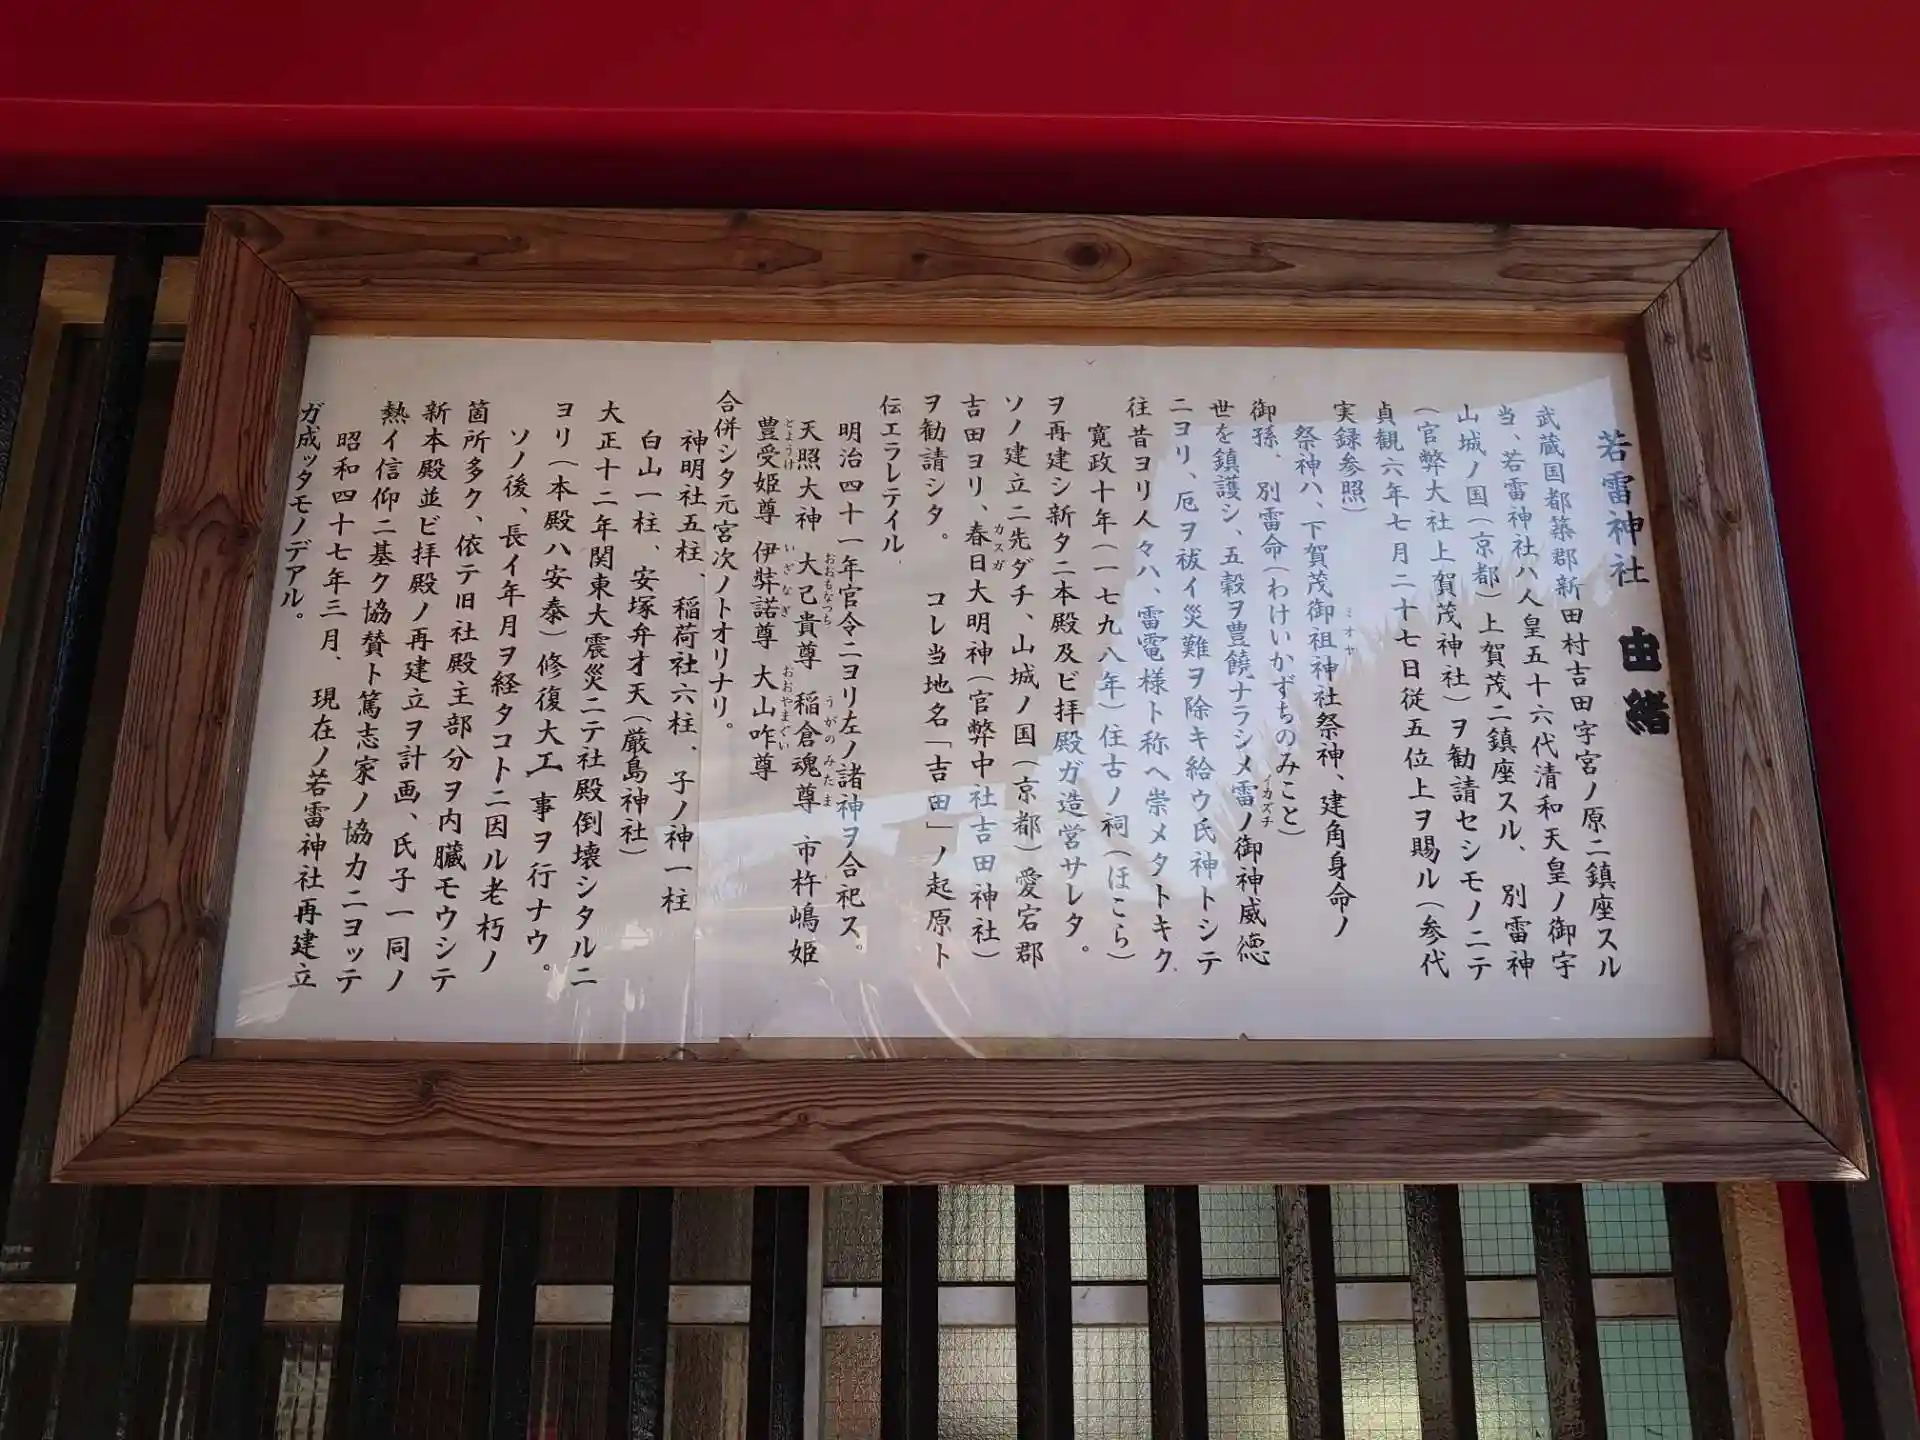 若雷神社 由緒
武蔵国都築郡新田村吉田字宮ノ原ニ鎮座スル
当、若雷神社ハ人皇五十六代清和天皇ノ御宇
山城ノ国(京都)上賀茂ニ鎮座スル、別雷神
(官弊大社上賀茂神社)ヲ勧請セシモノニテ
貞観六年七月二十七日従五位上ヲ賜ル(参代
実録参照)
祭神ハ、下賀茂御祖神社祭神、建角身命ノ
ミオヤ
御孫、別雷命(わけいかずちのみこと)
世を鎮護シ、五穀ヲ豊饒ナラシメ雷ノ御神威徳
イカズチ
ニヨリ、厄ヲ祓イ災難ヲ除キ給ウ氏神トシテ
往昔ヨリ人々ハ、雷電様ト称ヘ崇メタトキク
寛政十年(一七九八年)住古ノ祠(ほこら)
ヲ再建シ新タニ本殿及ビ拝殿ガ造営サレタ。
ソノ建立ニ先ダチ、山城ノ国(京都)愛宕郡
吉田ヨリ、春日大明神(官弊中社吉田神社)
カスガ
ヲ勧請シタ。コレ当地名「吉田」ノ起原ト
伝エラレテイル
明治四十一年官令ニヨリ左ノ諸神ヲ合祀ス。
天照大神 大己貴尊 稲倉魂尊 市杵嶋姫
おおもなつち うがのみたま
豊受姫尊 伊弉諾尊 大山咋尊
とようけ いざなぎ おおやまぐい
合併シタ元宮次ノトオリナリ。
神明社五柱、稲荷社六柱、子ノ神一柱
白山一柱、安塚弁才天(厳島神社)
大正十二年関東大震災ニテ社殿倒壊シタルニ
ヨリ(本殿ハ安泰)修復大工事ヲ行ナウ。
ソノ後、長イ年月ヲ経タコトニ因ル老朽ノ
箇所多ク、依テ旧社殿王部分ヲ内臓モウシテ
新本殿並ビ拝殿ノ再建立ヲ計画、氏子一同ノ
熱イ信仰ニ基ク協賛ト篤志家ノ協力ニヨッテ
昭和四十七年三月、現在ノ若雷神社再建立
ガ成ッタモノデアル。